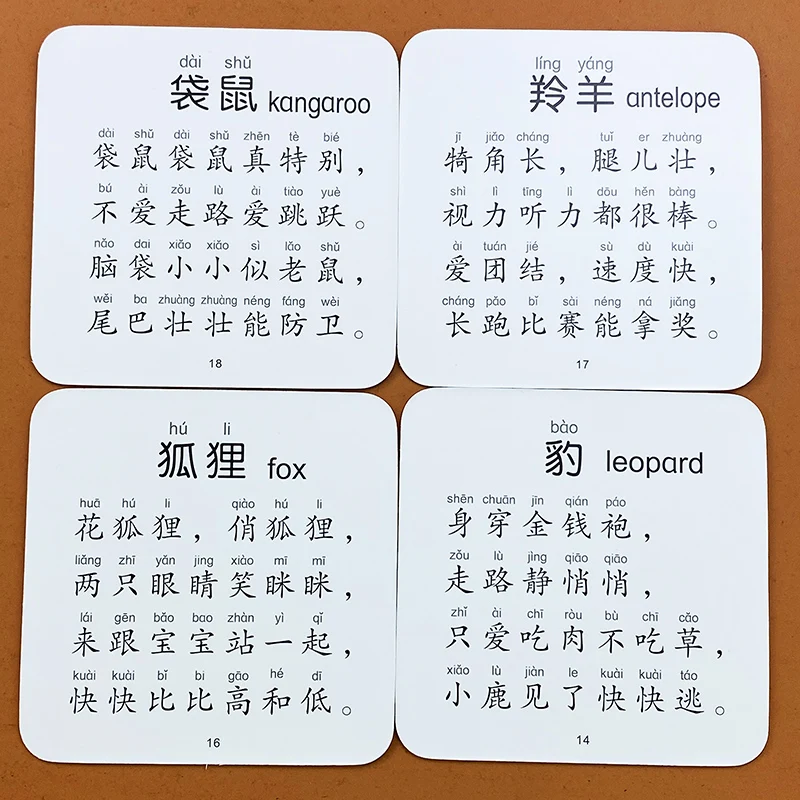 dài shǔ
袋鼠 kangaroo
dài shǔ dài shǔ zhēn tè bié
袋鼠袋鼠真特别，
bú ài zǒu lù ài tiào yuè
不爱走路爱跳跃。
nǎo dai xiǎo xiǎo sì lǎo shǔ
脑袋小小似老鼠，
wěi ba zhuàng zhuàng néng fáng wèi
尾巴壮壮能防卫。
18
líng yáng
羚羊 antelope
jī jiǎo cháng tuǐ er zhuàng
犄角长，腿儿壮，
shì lì tīng lì dōu hěn bàng
视力听力都很棒。
ài tuán jié sù dù kuài
爱团结，速度快，
cháng pǎo bǐ sài néng ná jiǎng
长跑比赛能拿奖。
17
hú li
狐狸 fox
huā hú li qiào hú li
花狐狸，俏狐狸，
liǎng zhī yǎn jing xiào mī mī
两只眼睛笑眯眯，
lái gēn bǎo bao zhàn yì qǐ
来跟宝宝站一起，
kuài kuài bǐ bi gāo hé dī
快快比比高和低。
16
bào
豹 leopard
shēn chuān jīn qián páo
身穿金钱袍，
zǒu lù jìng qiāo qiāo
走路静悄悄，
zhǐ ài chī ròu bù chī cǎo
只爱吃肉不吃草，
xiǎo lù jiàn le kuài kuài táo
小鹿见了快快逃。
14